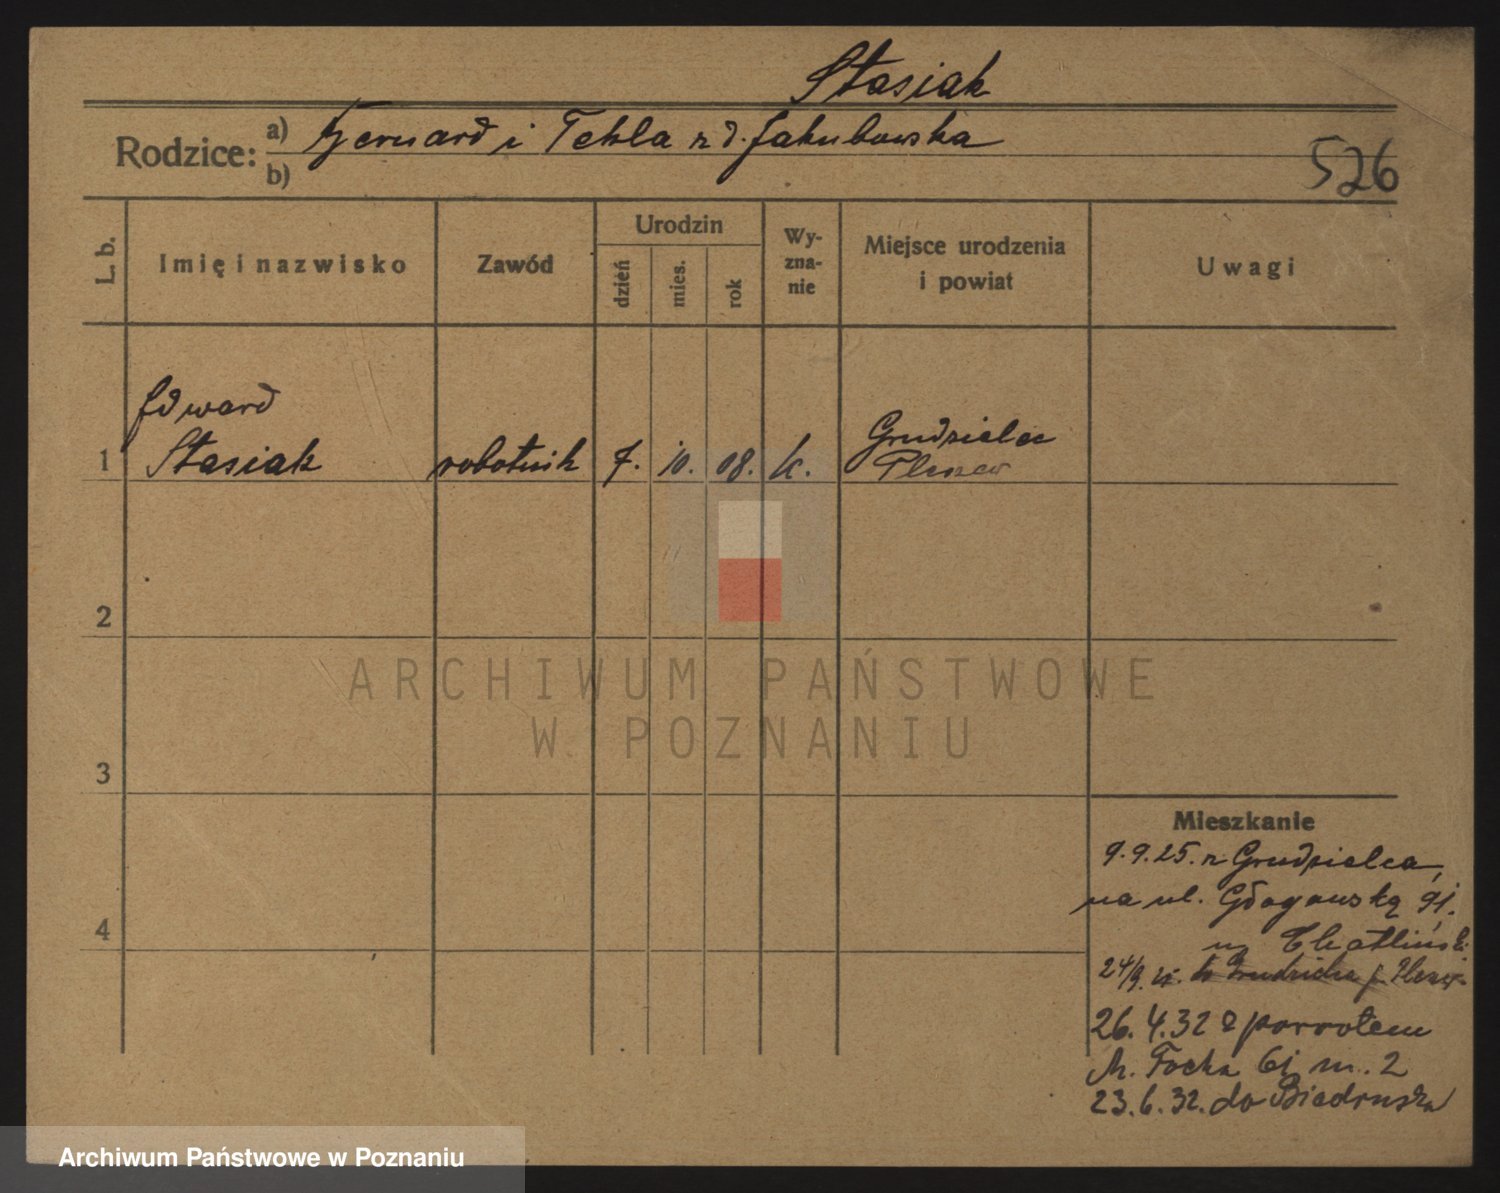 Stasiak
Rodzice: a) Bernard i Tekla z d. Jakubowska
b)
526
L. b.
Imię i nazwisko
Zawód
Urodzin
dzień
mies.
rok
Wy-
zna-
nie
Miejsce urodzenia
i powiat
Uwagi
Edward
1 Stasiak robotnik 7. 10. 08. k. Grudzielec
Pleszew
2
3
4
ARCHIWUM PAŃSTWOWE
W POZNANIU
Mieszkanie
9.9.25. z Grudzielca,
na ul. Głogowską 91.
24/9. do Grudzielca p. Plesz.
26.4.32 z powrotem
M. Focha 61 m. 2
23.6.32. do Biedruska
Archiwum Państwowe w Poznaniu